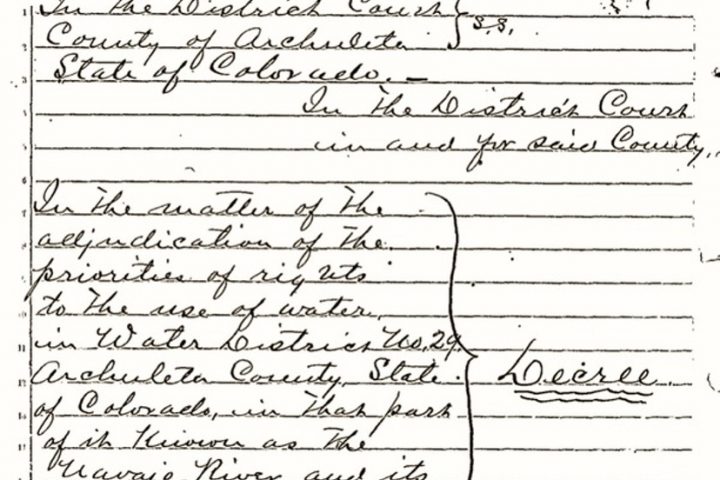 In the District Court } S.S.
County of Archuleta
State of Colorado. —
In the District Court
in and for said County,
In the matter of the
adjudication of the
priorities of rights
to the use of water,
in Water District No. 29,
Archuleta County, State
of Colorado, in that part
of it known as the
Navajo River and its
Decree